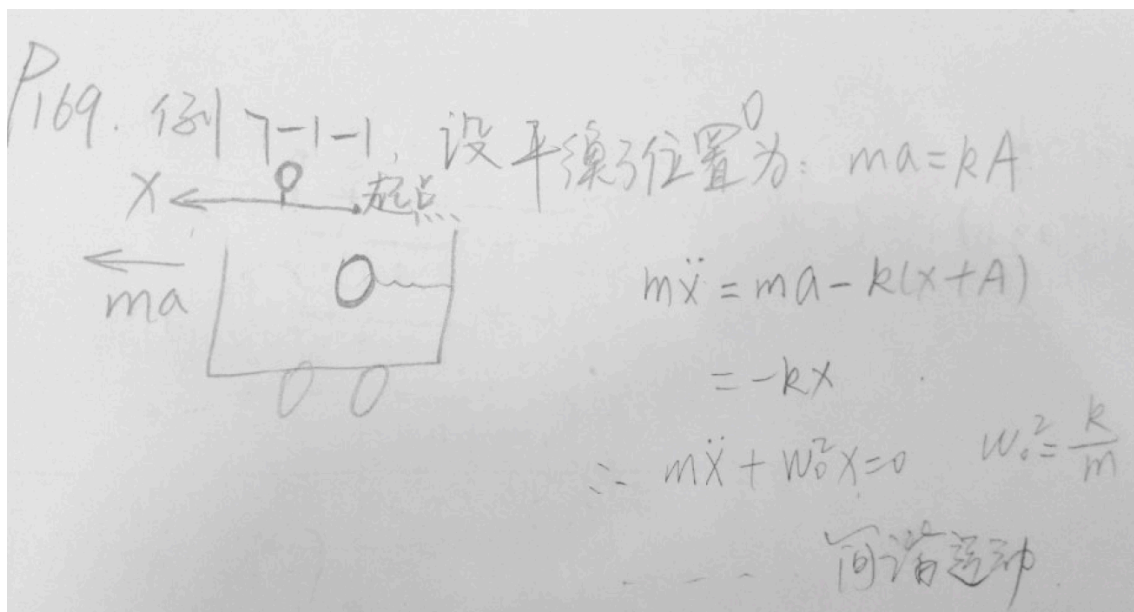 P169. 例 7-1-1, 设平衡位置O为: ma=kA
X O 起点
ma
mẍ = ma - k(x+A)
= -kx
∴ mẍ + ω₀²x=0 ω₀²=k/m
...... 简谐运动